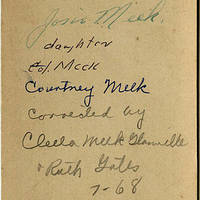 Josie Meek.
daughter
Col. Meek
Courtney Meek
Corrected by
Cleela Meek Glanville
& Ruth Gates
7-68